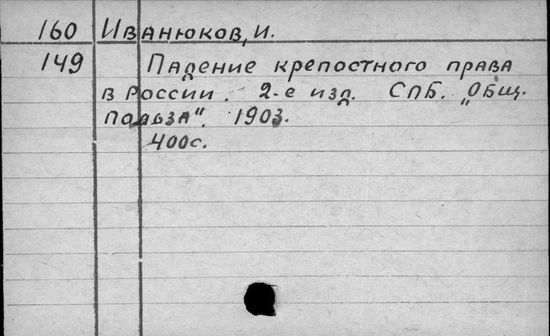 160 Иванюков, И.
149 Падение крепостного права
в России. 2-е изд. СПБ. „Общ.
польза". 1903.
400с.